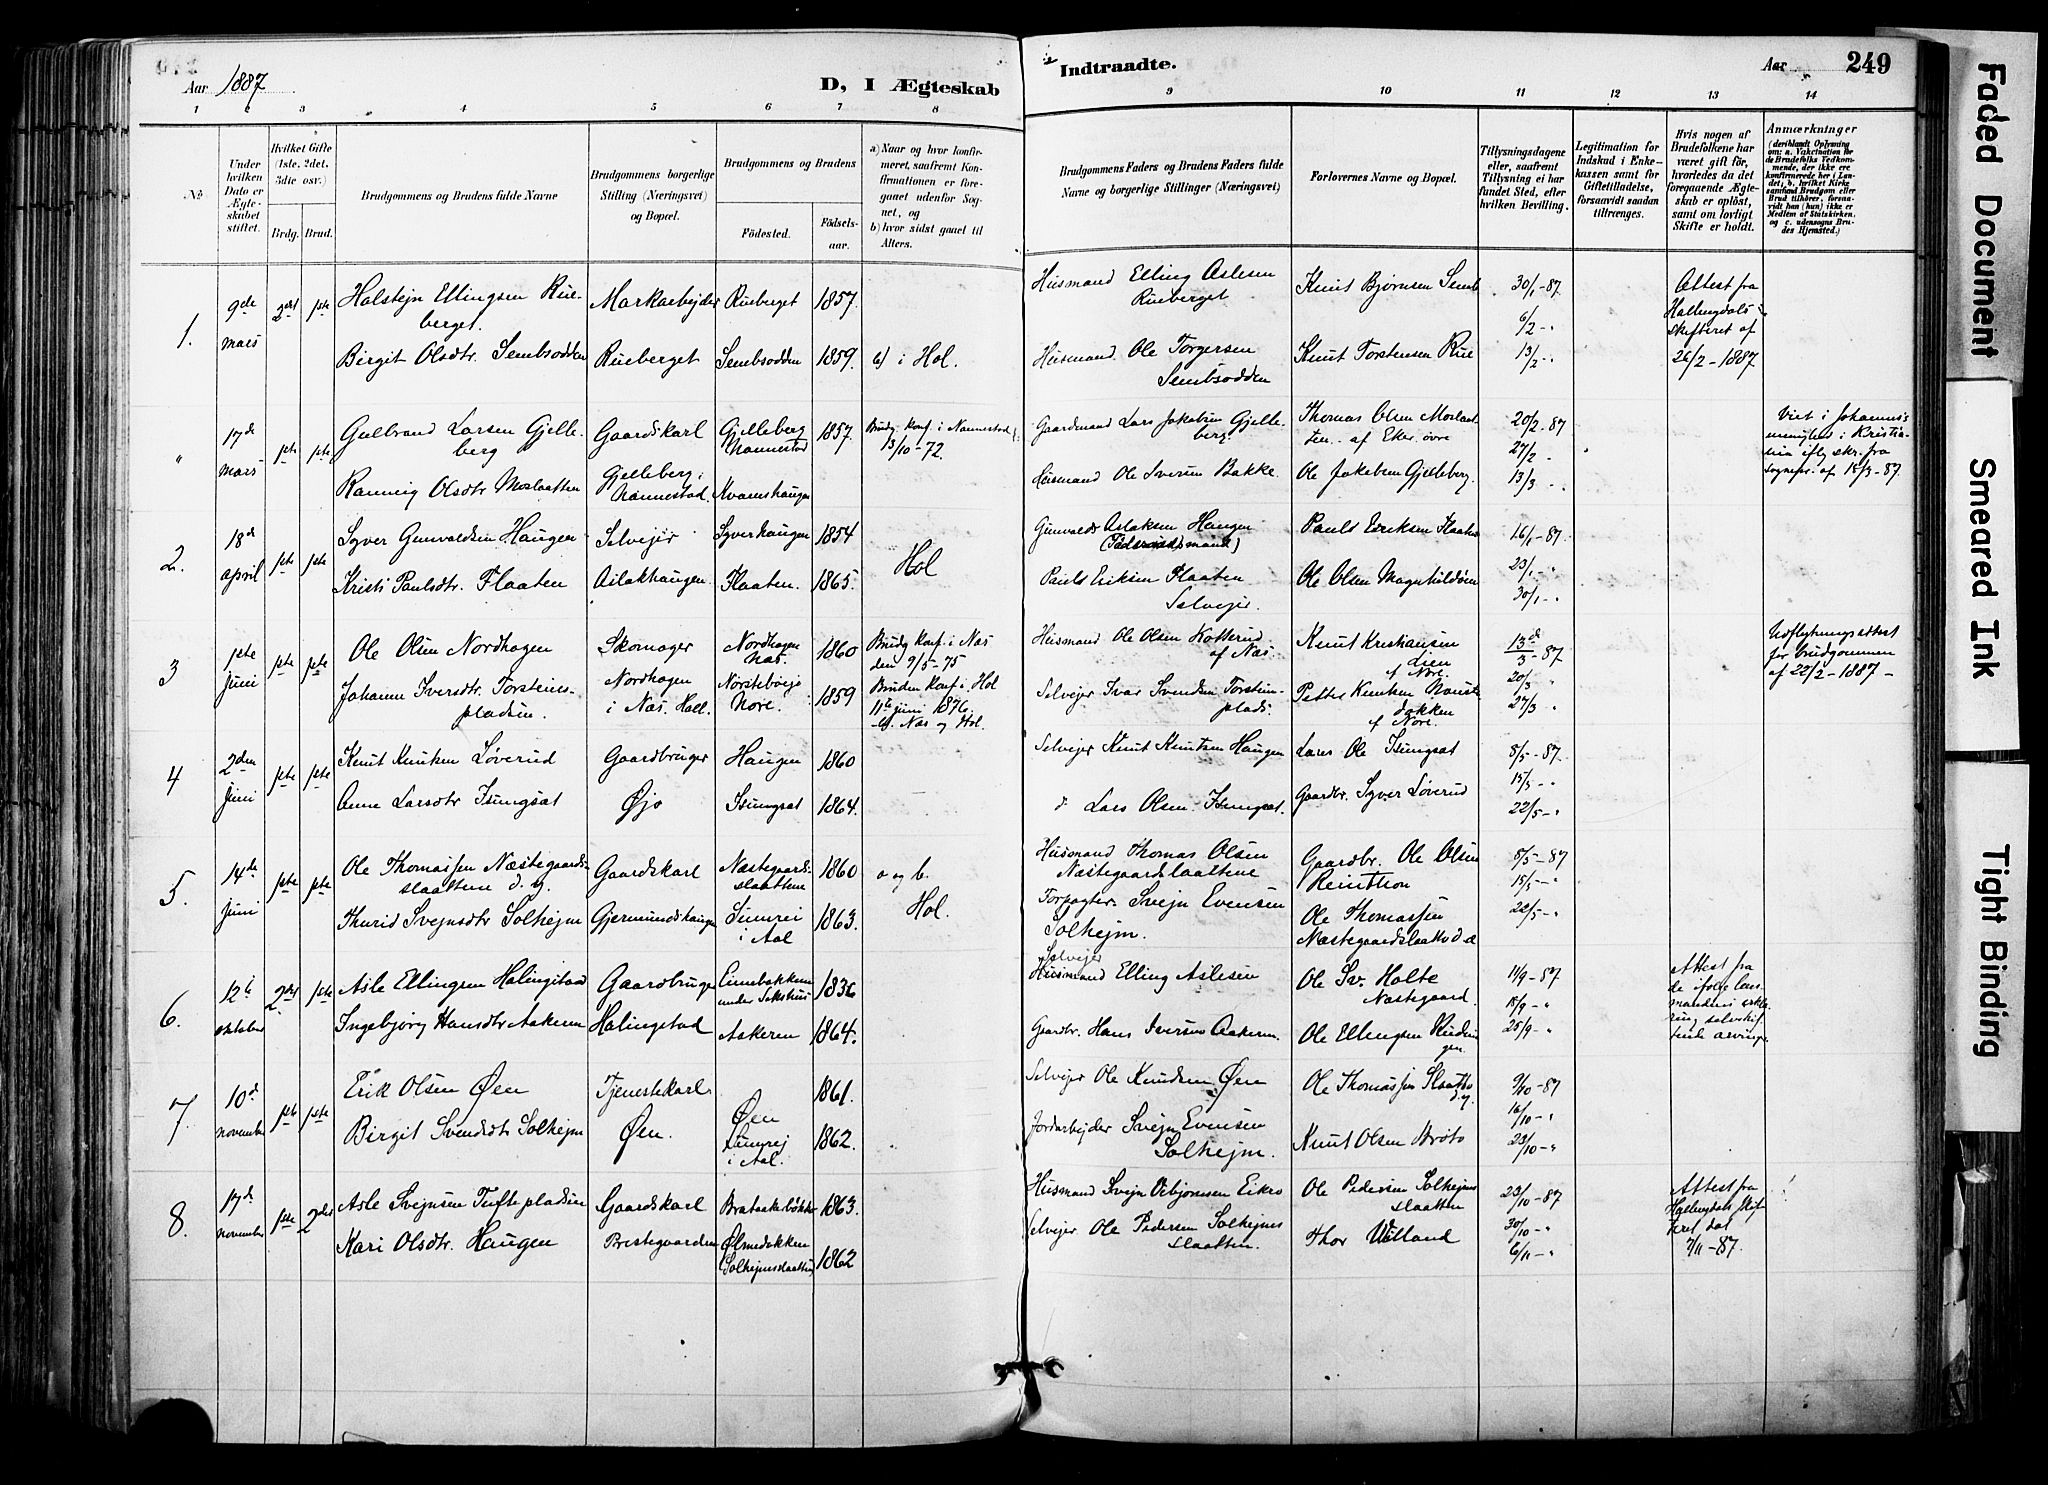 Aar 1887
D, I Ægteskab
Indtraadte.
Aar
249
1 2 3 4 5 6 7 8 9 10 11 12 13 14
No
Under hvilken Dato er Ægteskabet stiftet.
Hvilket Gifte (1ste, 2det, 3die osv.)
Brdg. Brud.
Brudgommens og Brudens fulde Navne
Brudgommens borgerlige Stilling (Næringsvei) og Bopæl.
Brudgommens og Brudens
Födested.
Födselsaar.
a) Naar og hvor konfirmeret, saafremt Konfirmationen er foregaaet udenfor Sognet, og
b) hvor sidst gaaet til Alters.
Brudgommens Faders og Brudens Faders fulde Navne og borgerlige Stillinger (Næringsvei)
Forlovernes Navne og Bopæl.
Tillysningsdagene eller, saafremt Tillysning ei har fundet Sted, efter hvilken Bevilling.
Legitimation for Indskud i Enkekassen samt for Giftetilladelse, forsaavidt saadan tiltrænges.
Hvis nogen af Brudefolkene har været gift för, hvorledes da det foregaaende Ægteskab er oplöst, samt om lovligt Skifte er holdt.
Anmærkninger (deriblandt Oplysning om: a. Vakcination for de Brudefolks Vedkommende, der ikke ere konfirmerede her i Landet; b. hvilket Kirkesamfund Brudgom eller Brud tilhörer, forsaavidt han (hun) ikke er Medlem af Statskirken, og c. udensogns Brudes Hjemsted.)
1. 9de Mars 2det 1ste
Holstejn Ellingsen Rueberget. Markarbejder Rueberget 1857.
Husmand Elling Aslesen Rueberget
Knut Bjørnsen Semb 30/1-87
6/2 -"
Attest fra Hallingdals skifteret af 26/2-1887
Birgit Olsdtr. Sembsodden Rueberget Sembsodden 1859. b) i Hol.
Husmand Ole Torgersen Sembsodden
Knut Torstensen Rue 13/2 -"
" 17de Mars 1ste 1ste
Gulbrand Larsen Gjelleberg Gaardskarl Gjelleberg Nannestad 1857. Brudg. konf. i Nannestad 13/10-72.
Gaardmand Lars Jakobsen Gjelleberg.
Thomas Olsen Moslaatten af Eker. øvre 20/2-87
27/2 -"
Viet i Johannes menighed i Kristiania ifly skr. fra Sognepr. af 18/3-87.
Ranneig Olsdtr Moslaatten Gjelleberg, Nannestad. Kvamshaugen
Husmand Ole Iversen Bakke. Ole Jakobsen Gjelleberg. 13/3 -"
2. 18de april 1ste 1ste
Syver Gunvaldsen Haugen Selvejer Syverhaugen 1854 Hol
Gunvald Aslaksen Haugen (Føderaadsmand)
Pauls Eriksen Flaaten 16/1-87.
23/1 -"
Kristi Paulsdtr. Flaaten Aslakhaugen Flaaten. 1865.
Pauls Eriksen Flaaten Selvejer.
Ole Olsen 30/1 -"
3 1ste Juni 1ste 1ste
Ole Olsen Nordhagen Skomager Nordhagen Nas. 1860 Brudg konf. i Nas den 9/5-75
Husmand Ole Olsen Kotterud af Nas.
Knut Kristiansen Lien af Nore. 13de/3-87
20/3 "
Udflytningsattest for brudgommen af 22/2-1887 -
Johanne Iversdtr. Torsteinspladsen. Nordhagen i Nas. Hall. Nore. 1859 Bruden konf. i Hol 11te juni 1876. b. Nas og Hol.
Selvejer Ivar Svendsen Torsteinsplads.
Petter Knutsen af Nore. 27/3 "
4 2den Juni 1ste 1ste
Knut Knutsen Løverud Gaardbruger Haugen 1860
Selvejer Knut Knutsen Haugen Lars Ole Isungsat 8/5-87.
15/5 -"
Anne Larsdtr Isungsat Øjo Isungsat 1864.
d. Lars Olsen Isungsat. Gaardbr. Syver Løverud 22/5 -"
5. 14de Juni 1ste 1ste
Ole Thomassen Næstegaardsslaattene d. y. Gaardskarl Næstegaardsslaattene 1860 a og b. Hol.
Husmand Thomas Olsen Næstegaardslaattene
Gaardbr. Ole Olsen Reinthon 8/5-87
15/5 -"
Thurid Svejnsdtr Solhejm Gjermundshaugen Sunrei i Aal 1863.
Forpagter Svejn Evensen Solhejm.
Ole Thomassen Næstegaardslaatto d æ 22/5 -"
6. 12te oktober 2det 1ste
Asle Ellingsen Halingstad Gaardbruger 1836
Selvejer Husmand Elling Aslesen
Ole Sv. Holte Næstegaard. 11/9-87
18/9 -"
Attest fra de ifølge lensmandens erklæring selvskiftende arvinger
Ingebjørg Hansdtr Aakeren Halingstad Aakeren 1864.
Gaardbr. Hans Iversen Aakeren. Ole Ellingsen 25/9 -"
7. 10de november 1ste 1ste
Erik Olsen Øen Tjenestekarl Øen 1861.
Selvejer Ole Knudsen Øen Ole Thomassen Slaatto d.y. 9/10-87
16/10 -"
Birgit Svendsdtr Solhejm Øen. Sunrej i Aal. 1862.
Jordarbejder Svejn Evensen Solhejm. Knut Olsen Brøto 23/10 -"
8. 17de november 1ste 2det
Asle Svejnsen Tuftepladsen Gaardskarl 1863.
Husmand Svejn Asbjørnsen Eikro
Ole Pedersen Solhejmsslaatten 23/10-87
30/10 -"
Attest fra Hallingdals Skifteret dat 7/11-87.
Kari Olsdtr. Haugen Prestegaarden Ølmedokken (Solhejmsslaatten) 1862
Selvejer Ole Pedersen Solhejmsslaatten. Thor Villand 6/11 -"
Faded Document
Smeared Ink
Tight Binding